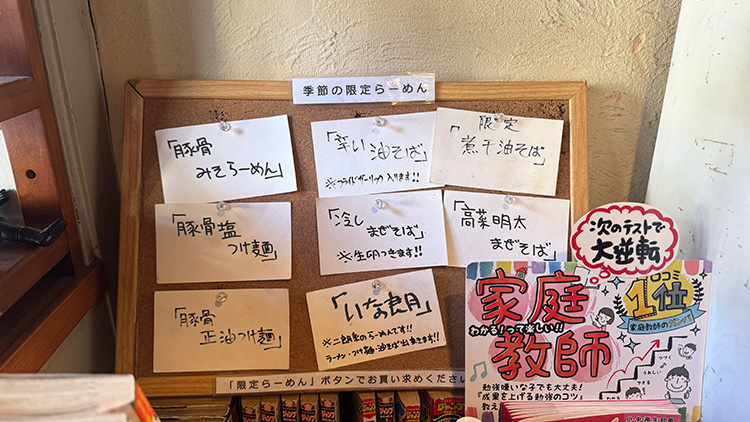 季節の限定らーめん
「豚骨
みそらーめん」
「辛い
油そば」
※フライドガーリック入ります!!
限定
「煮干油そば」
「豚骨塩
つけ麺」
「冷し
まぜそば」
※生卵つきます!!
「高菜明太
まぜそば」
「豚骨
正油つけ麺」
※二郎系のらーめんです!!
ラーメン・つけ麺・油そば出来ます!!
「限定らーめん」ボタンでお買い求めください
次のテストで
大逆転
家庭
教師
わかる!って楽しい!!
口コミ
1位
勉強嫌いな子でも大丈夫!
『成果を上げる勉強のコツ』
教え
つづく
うれしい
できる